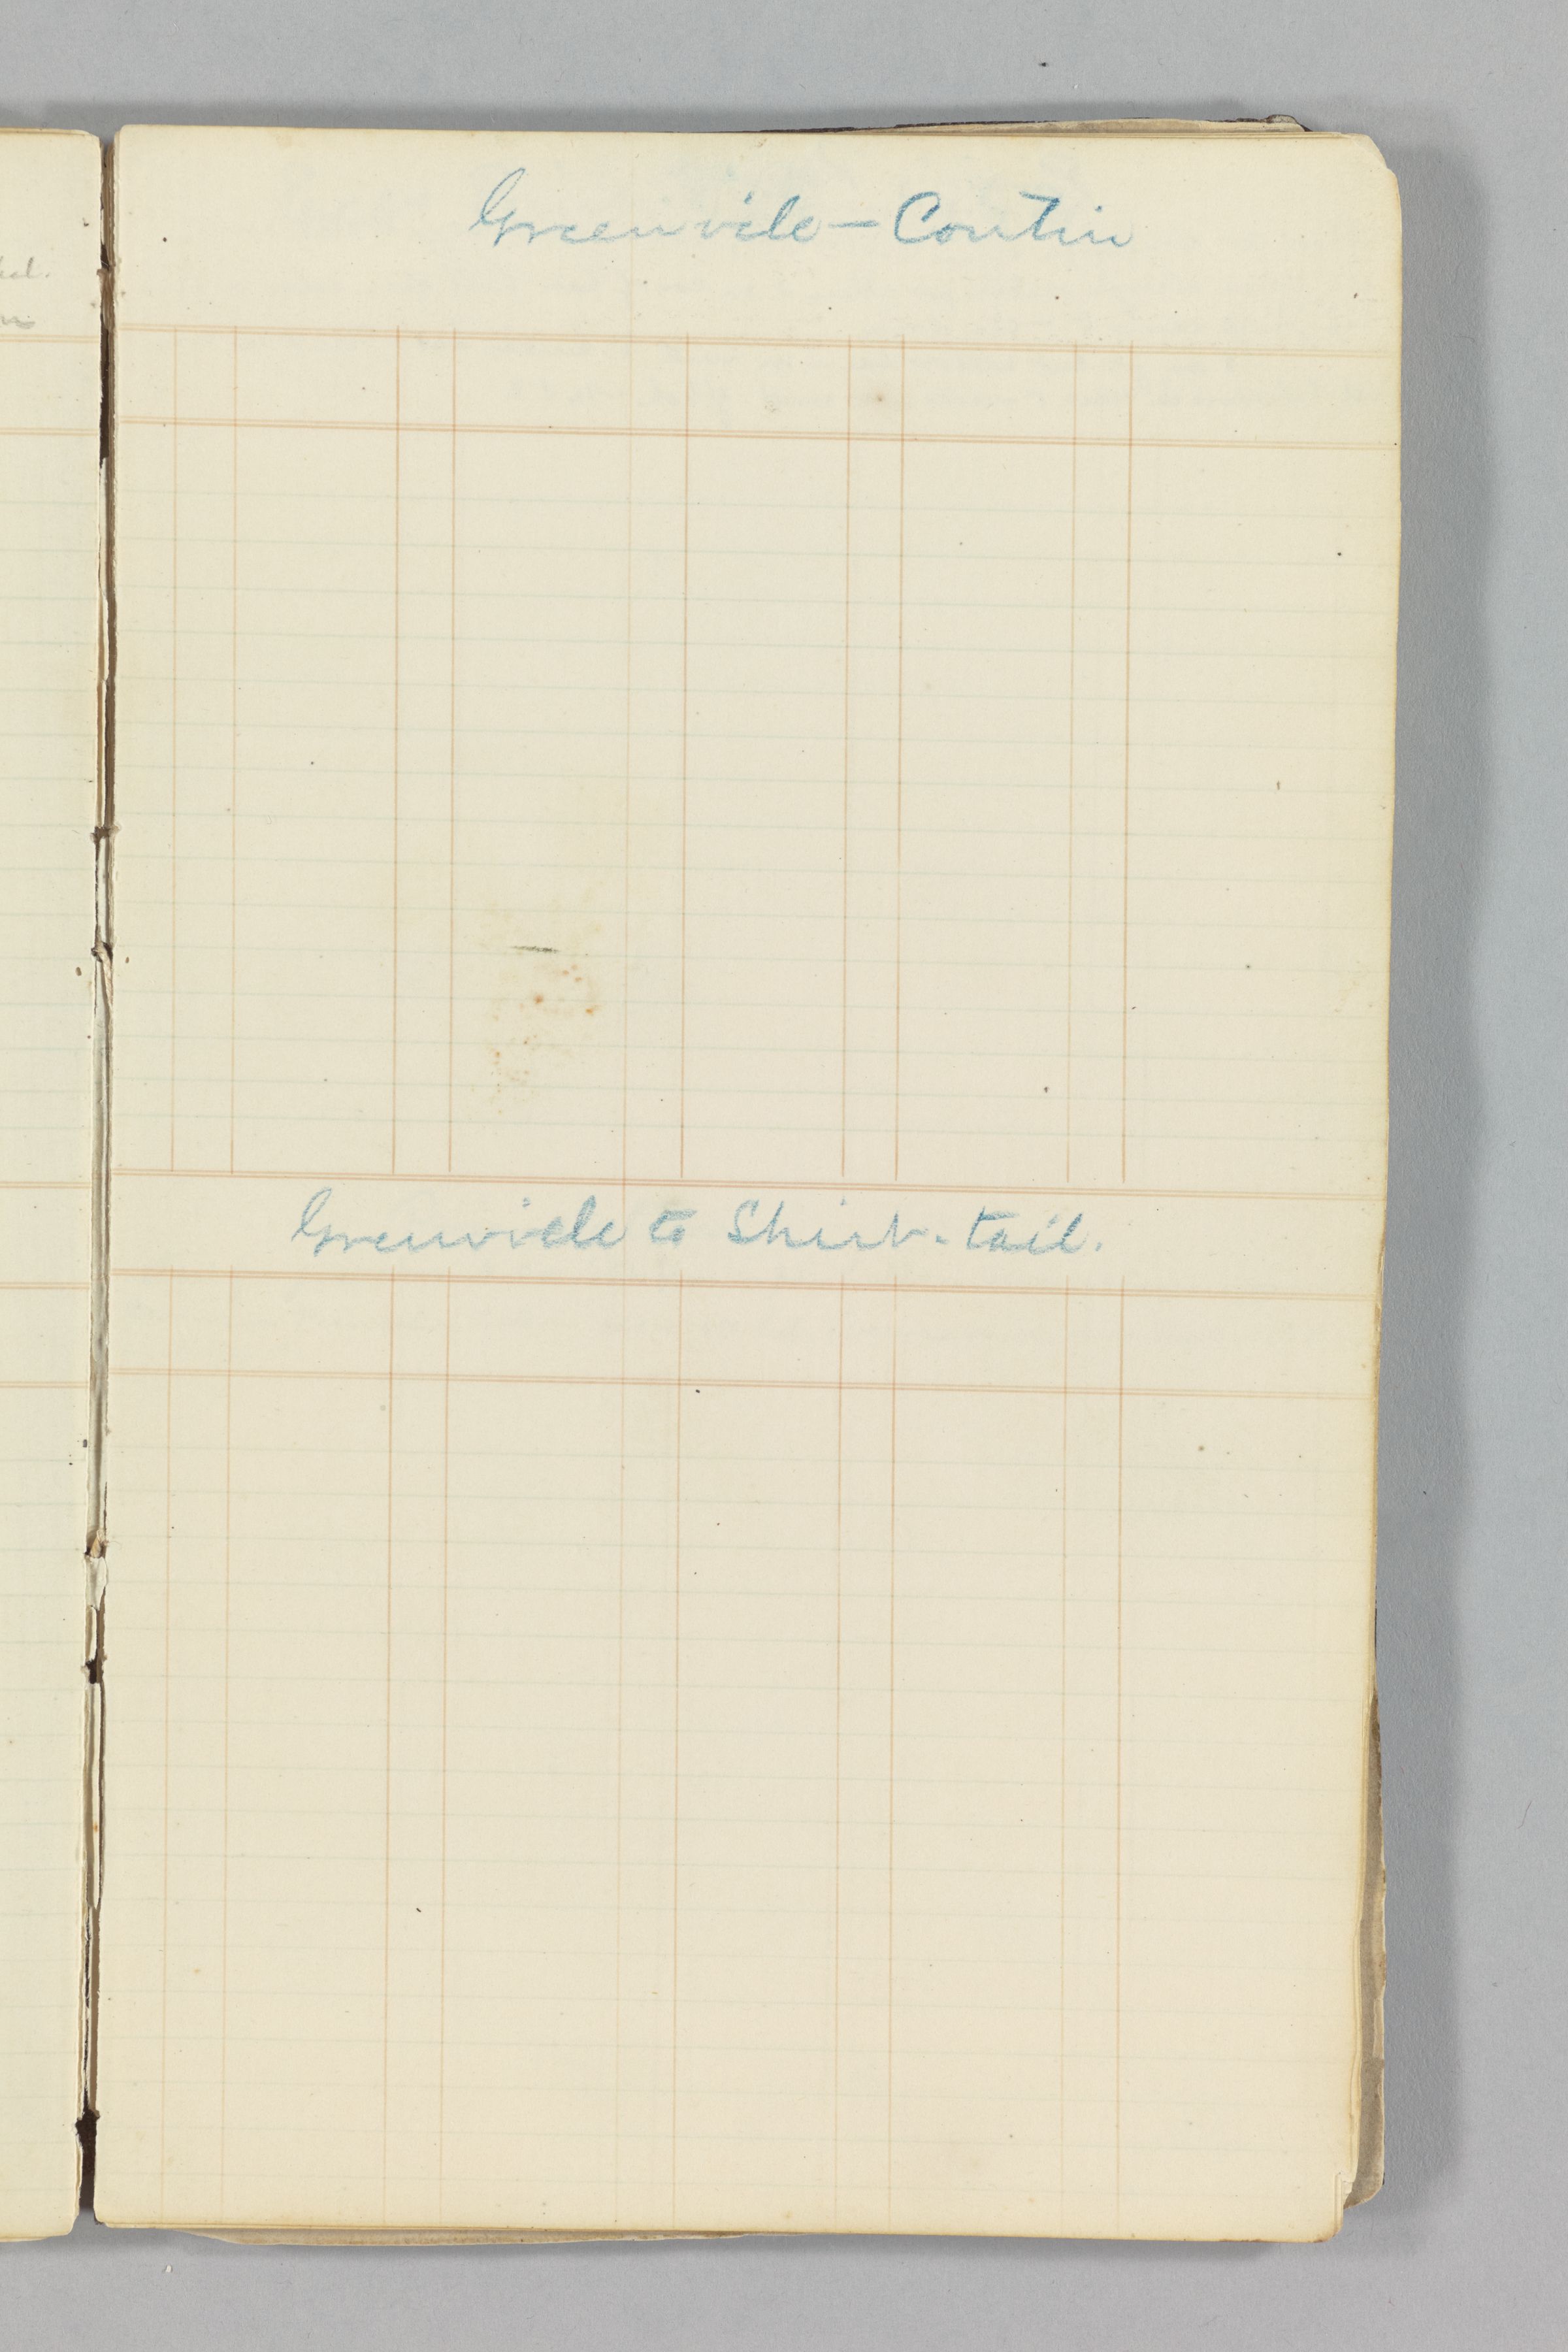 Greenvile — Contin
Greenville to Shirt-tail.